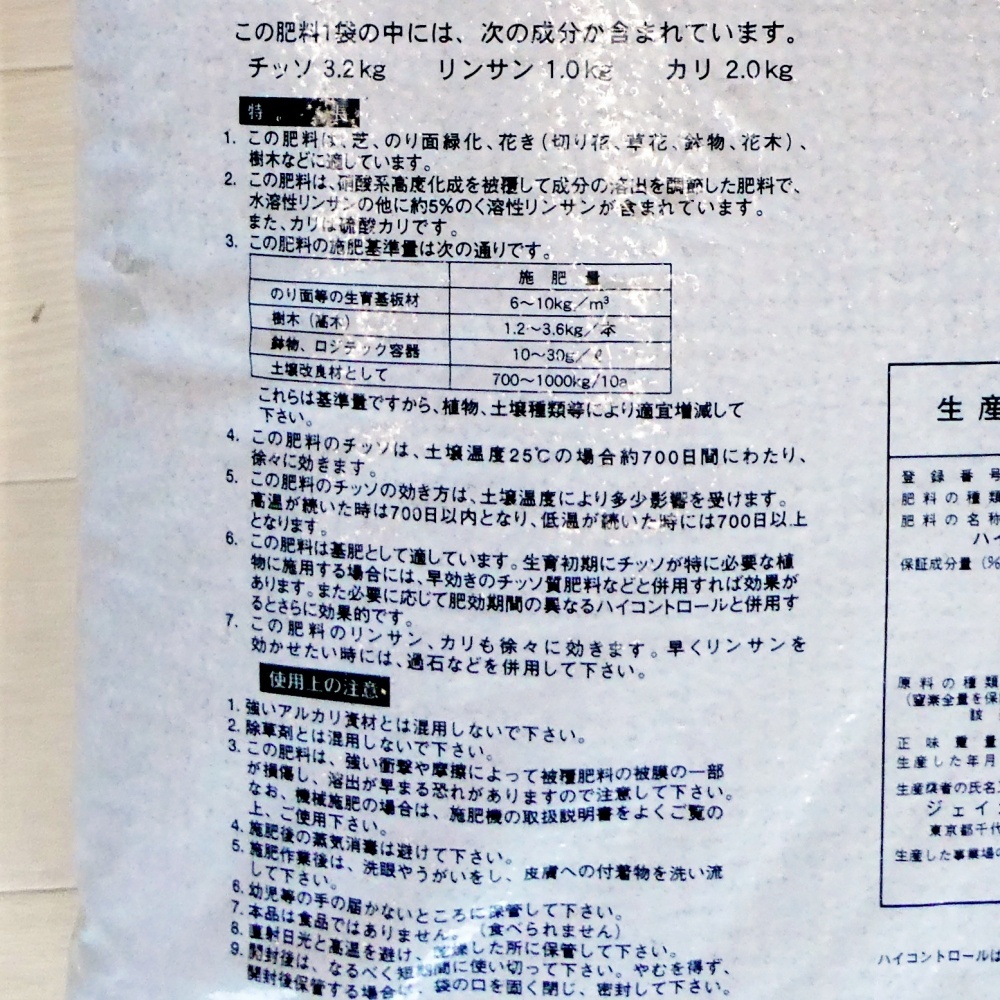 この肥料1袋の中には、次の成分が含まれています。
チッソ 3.2kg　リンサン 1.0kg　カリ 2.0kg
特　長
1. この肥料は、芝、のり面緑化、花き（切り花、草花、鉢物、花木）、
樹木などに適しています。
2. この肥料は、硝酸系高度化成を被覆して成分の溶出を調節した肥料で、
水溶性リンサンの他に約5%のく溶性リンサンが含まれています。
また、カリは硫酸カリです。
3. この肥料の施肥基準量は次の通りです。
施肥量
のり面等の生育基板材　6〜10kg／m³
樹木（高木）　1.2〜3.6kg／本
鉢物、ロジテック容器　10〜30g／ℓ
土壌改良材として　700〜1000kg/10a
これらは基準量ですから、植物、土壌種類等により適宜増減して
下さい。
4. この肥料のチッソは、土壌温度25℃の場合約700日間にわたり、
徐々に効きます。
5. この肥料のチッソの効き方は、土壌温度により多少影響を受けます。
高温が続いた時は700日以内となり、低温が続いた時には700日以上
となります。
6. この肥料は基肥として適しています。生育初期にチッソが特に必要な植
物に施用する場合には、早効きのチッソ質肥料などと併用すれば効果が
あります。また必要に応じて肥効期間の異なるハイコントロールと併用す
るとさらに効果的です。
7. この肥料のリンサン、カリも徐々に効きます。早くリンサンを
効かせたい時には、過石などを併用して下さい。
使用上の注意
1. 強いアルカリ資材とは混用しないで下さい。
2. 除草剤とは混用しないで下さい。
3. この肥料は、強い衝撃や摩擦によって被覆肥料の被膜の一部
が損傷し、溶出が早まる恐れがありますので注意して下さい。
なお、機械施肥の場合は、施肥機の取扱説明書をよくご覧の
上、ご使用下さい。
4. 施肥後の蒸気消毒は避けて下さい。
5. 施肥作業後は、洗眼やうがいをし、皮膚への付着物を洗い流
して下さい。
6. 幼児等の手の届かないところに保管して下さい。
7. 本品は食品ではありません。（食べられません）
8. 直射日光と高温を避け、乾燥した所に保管して下さい。
9. 開封後は、なるべく短期間に使い切って下さい。やむを得ず、
開封後保管する場合は、袋の口を固く閉じ、密封して下さい。
生産
登録番号
肥料の種類
肥料の名称
ハイ
保証成分量（%
原料の種類
（窒素全量を保
該
正味重量
生産した年月
生産業者の氏名
ジェイ
東京都千代
生産した事業場の
ハイコントロールは